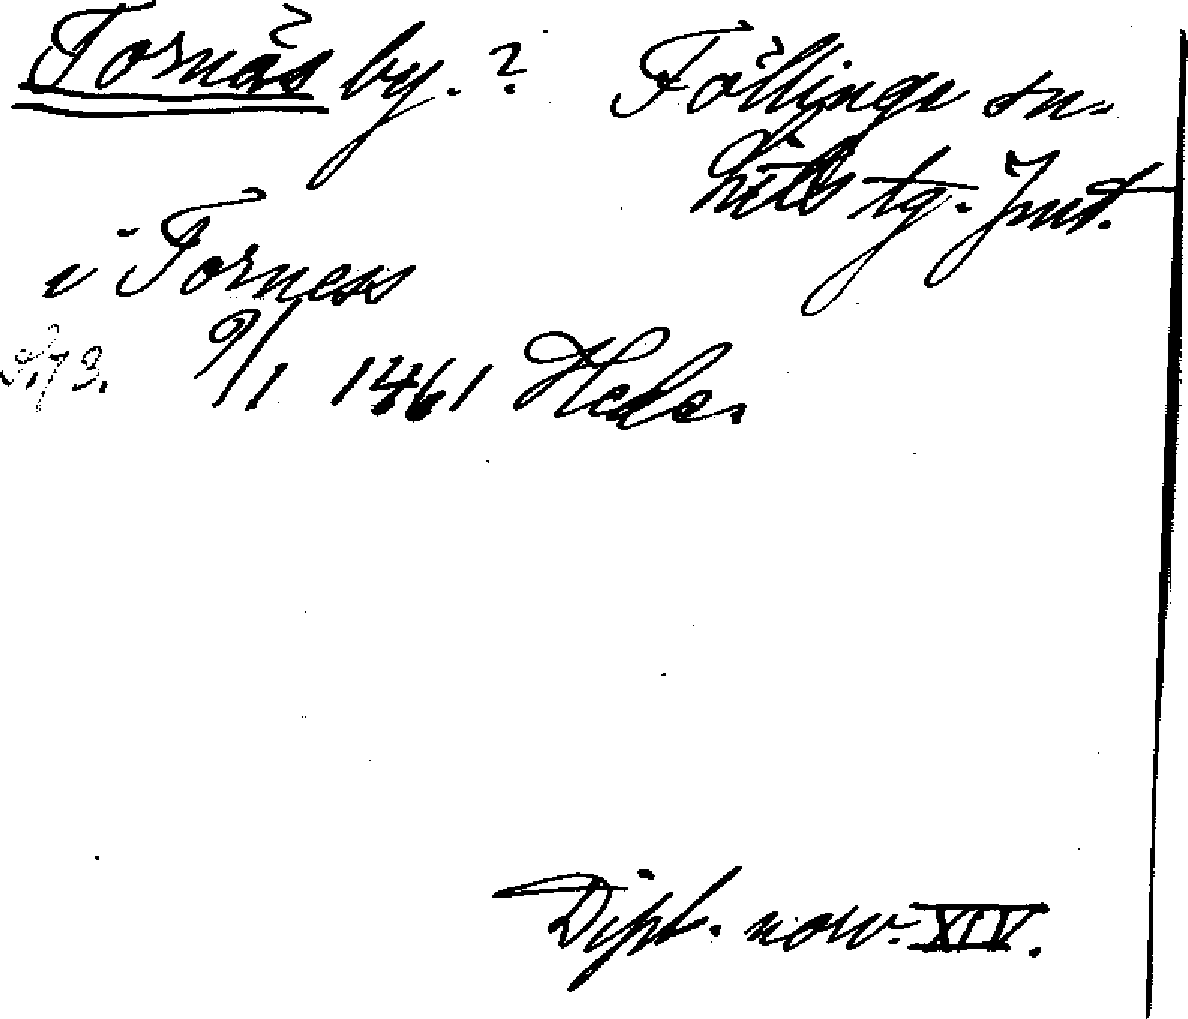 Tornäs by. ? Föllinge sn.
Liths tg. Jmt.
i Torness
S. 73. 9/1 1461 Hede.
Dipl. norv. XIV.